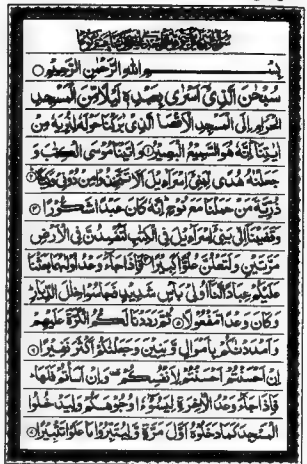 بِسْمِ اللهِ الرَّحْمٰنِ الرَّحِيْمِ
سُبْحٰنَ الَّذِيْٓ اَسْرٰى بِعَبْدِهٖ لَيْلًا مِّنَ الْمَسْجِدِ
الْحَرَامِ اِلَى الْمَسْجِدِ الْاَقْصَا الَّذِيْ بٰرَكْنَا حَوْلَهٗ لِنُرِيَهٗ مِنْ
اٰيٰتِنَا اِنَّهٗ هُوَ السَّمِيْعُ الْبَصِيْرُ ۱ وَاٰتَيْنَا مُوْسَى الْكِتٰبَ وَ
جَعَلْنٰهُ هُدًى لِّبَنِيْٓ اِسْرَآءِيْلَ اَلَّا تَتَّخِذُوْا مِنْ دُوْنِيْ وَكِيْلًا ۲
ذُرِّيَّةَ مَنْ حَمَلْنَا مَعَ نُوْحٍ اِنَّهٗ كَانَ عَبْدًا شَكُوْرًا ۳
وَقَضَيْنَآ اِلٰى بَنِيْٓ اِسْرَآءِيْلَ فِي الْكِتٰبِ لَتُفْسِدُنَّ فِي الْاَرْضِ
مَرَّتَيْنِ وَلَتَعْلُنَّ عُلُوًّا كَبِيْرًا ۴ فَاِذَا جَآءَ وَعْدُ اُوْلٰىهُمَا بَعَثْنَا
عَلَيْكُمْ عِبَادًا لَّنَآ اُولِيْ بَاْسٍ شَدِيْدٍ فَجَاسُوْا خِلٰلَ الدِّيَارِ
وَكَانَ وَعْدًا مَّفْعُوْلًا ۵ ثُمَّ رَدَدْنَا لَكُمُ الْكَرَّةَ عَلَيْهِمْ
وَاَمْدَدْنٰكُمْ بِاَمْوَالٍ وَّبَنِيْنَ وَجَعَلْنٰكُمْ اَكْثَرَ نَفِيْرًا ۶
اِنْ اَحْسَنْتُمْ اَحْسَنْتُمْ لِاَنْفُسِكُمْ وَاِنْ اَسَاْتُمْ فَلَهَا
فَاِذَا جَآءَ وَعْدُ الْاٰخِرَةِ لِيَسُوْٓءٗا وُجُوْهَكُمْ وَلِيَدْخُلُوا
الْمَسْجِدَ كَمَا دَخَلُوْهُ اَوَّلَ مَرَّةٍ وَّلِيُتَبِّرُوْا مَا عَلَوْا تَتْبِيْرًا ۷